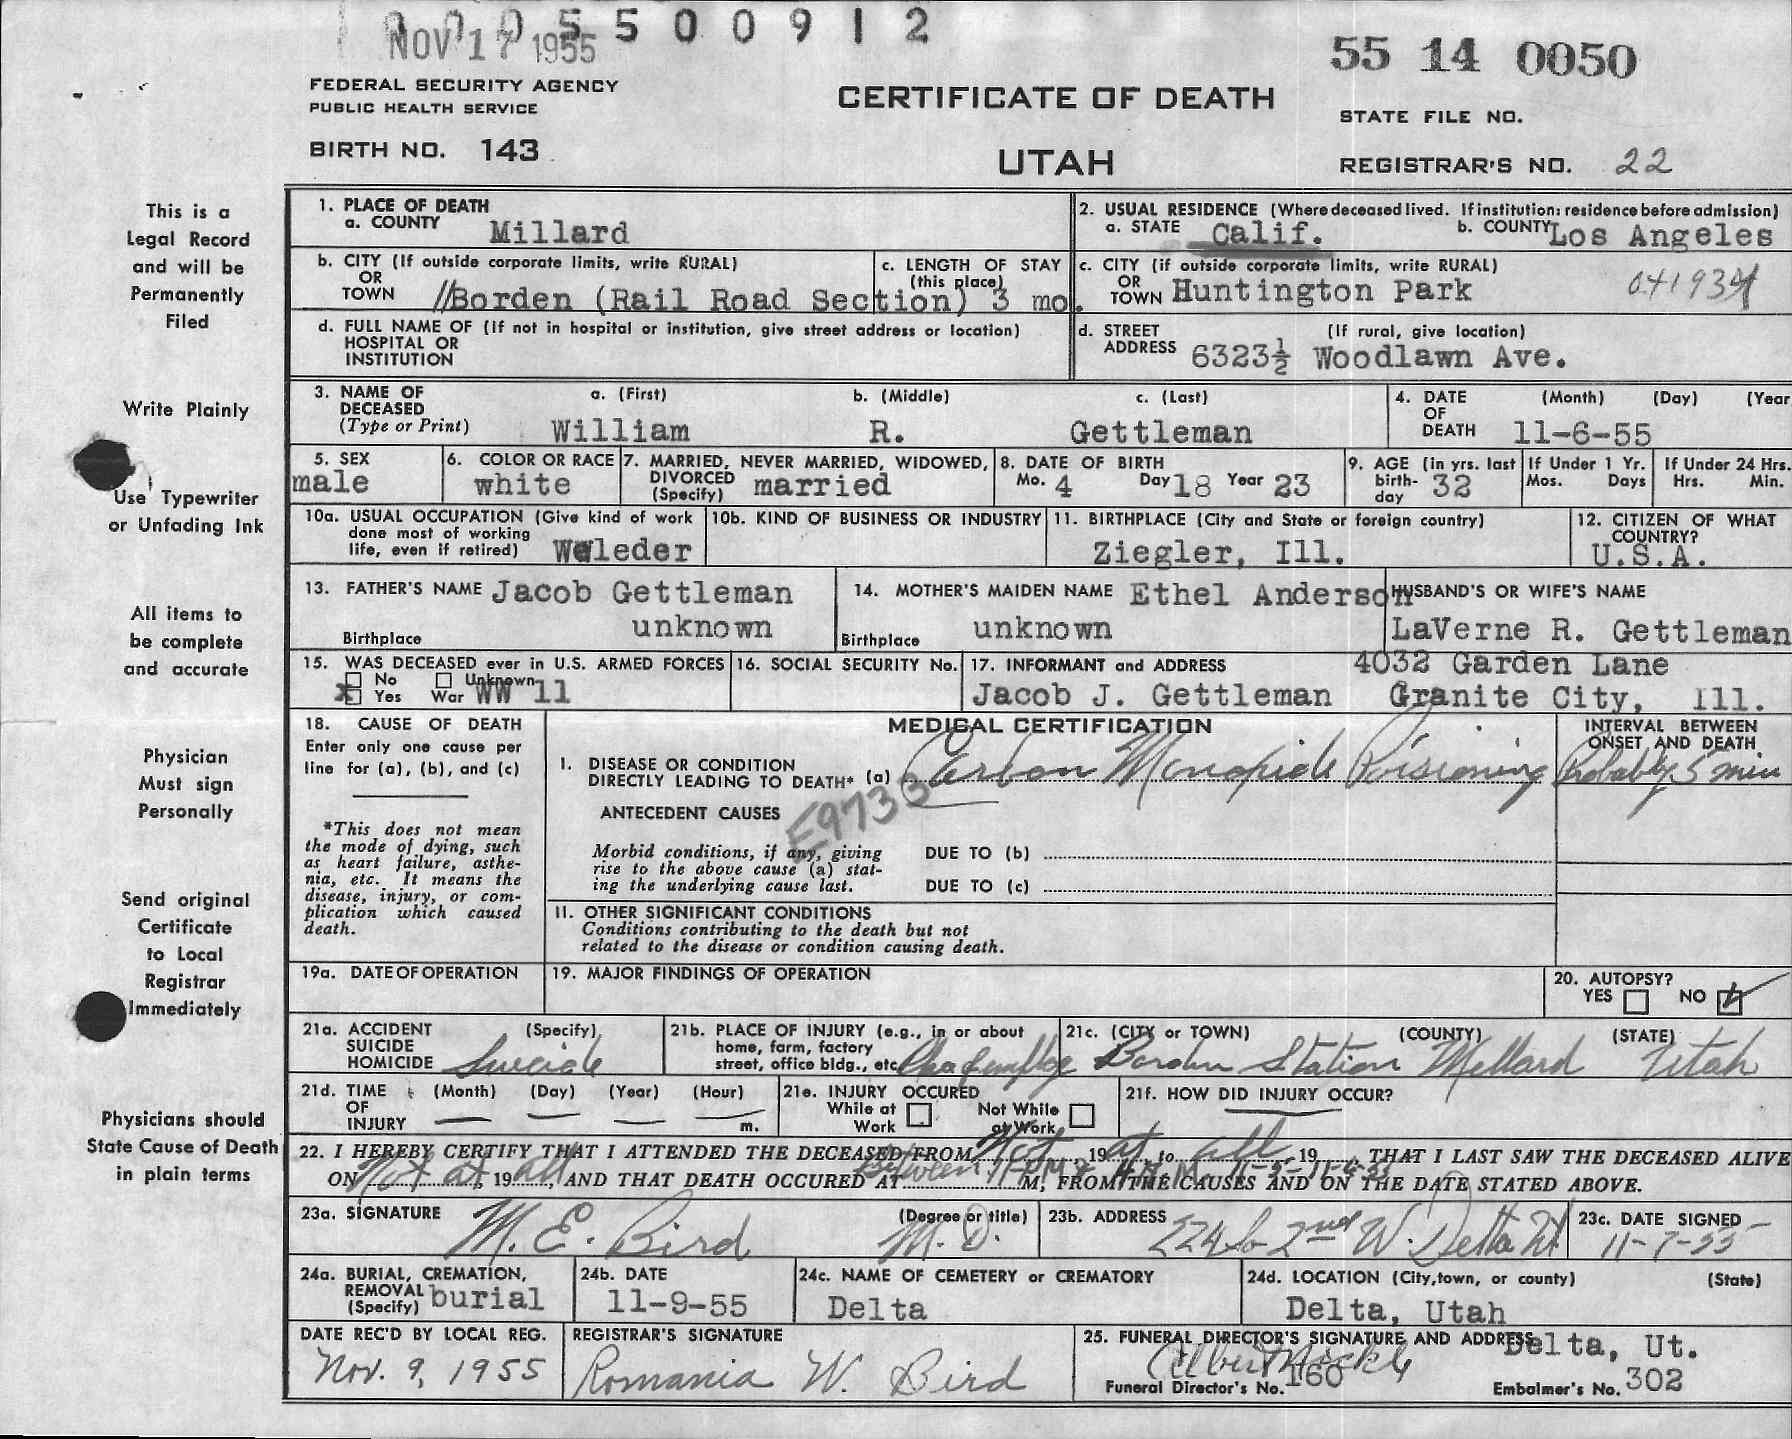 NOV 17 1955
0 0 0 5 5 0 0 9 1 2
55 14 0050
FEDERAL SECURITY AGENCY
PUBLIC HEALTH SERVICE
CERTIFICATE OF DEATH
STATE FILE NO.
BIRTH NO. 143
UTAH
REGISTRAR'S NO. 22
This is a
Legal Record
and will be
Permanently
Filed
Write Plainly
Use Typewriter
or Unfading Ink
All items to
be complete
and accurate
Physician
Must sign
Personally
Send original
Certificate
to Local
Registrar
Immediately
Physicians should
State Cause of Death
in plain terms
1. PLACE OF DEATH
a. COUNTY Millard
2. USUAL RESIDENCE (Where deceased lived. If institution: residence before admission)
a. STATE Calif. b. COUNTY Los Angeles
b. CITY (If outside corporate limits, write RURAL)
OR
TOWN //Borden (Rail Road Section)
c. LENGTH OF STAY
(this place)
3 mo.
c. CITY (if outside corporate limits, write RURAL)
OR
TOWN Huntington Park
d. FULL NAME OF (If not in hospital or institution, give street address or location)
HOSPITAL OR
INSTITUTION
d. STREET (If rural, give location)
ADDRESS 6323½ Woodlawn Ave.
3. NAME OF DECEASED
(Type or Print)
a. (First) b. (Middle) c. (Last)
William R. Gettleman
4. DATE OF DEATH (Month) (Day) (Year
11-6-55
5. SEX
male
6. COLOR OR RACE
white
7. MARRIED, NEVER MARRIED, WIDOWED,
DIVORCED
(Specify) married
8. DATE OF BIRTH
Mo. 4 Day 18 Year 23
9. AGE (in yrs. last
birth-
day 32
If Under 1 Yr.
Mos. Days
If Under 24 Hrs.
Hrs. Min.
10a. USUAL OCCUPATION (Give kind of work
done most of working
life, even if retired) Weleder
10b. KIND OF BUSINESS OR INDUSTRY
11. BIRTHPLACE (City and State or foreign country)
Ziegler, Ill.
12. CITIZEN OF WHAT
COUNTRY?
U.S.A.
13. FATHER'S NAME Jacob Gettleman
Birthplace unknown
14. MOTHER'S MAIDEN NAME Ethel Anderson
Birthplace unknown
HUSBAND'S OR WIFE'S NAME
LaVerne R. Gettleman
15. WAS DECEASED ever in U.S. ARMED FORCES
No Unknown
x Yes War WW 11
16. SOCIAL SECURITY No.
17. INFORMANT and ADDRESS 4032 Garden Lane
Jacob J. Gettleman Granite City, Ill.
18. CAUSE OF DEATH
Enter only one cause per
line for (a), (b), and (c)
*This does not mean
the mode of dying, such
as heart failure, asthe-
nia, etc. It means the
disease, injury, or com-
plication which caused
death.
MEDICAL CERTIFICATION
INTERVAL BETWEEN
ONSET AND DEATH
I. DISEASE OR CONDITION
DIRECTLY LEADING TO DEATH* (a) Carbon Monoxide Poisioning Probably 5 min
E9733
ANTECEDENT CAUSES
Morbid conditions, if any, giving
rise to the above cause (a) stat-
ing the underlying cause last.
DUE TO (b)
DUE TO (c)
II. OTHER SIGNIFICANT CONDITIONS
Conditions contributing to the death but not
related to the disease or condition causing death.
19a. DATE OF OPERATION
19. MAJOR FINDINGS OF OPERATION
20. AUTOPSY?
YES NO
21a. ACCIDENT (Specify)
SUICIDE
HOMICIDE Suicide
21b. PLACE OF INJURY (e.g., in or about
home, farm, factory
street, office bldg., etc
21c. (CITY or TOWN) (COUNTY) (STATE)
Borden Station Millard Utah
21d. TIME (Month) (Day) (Year) (Hour)
OF
INJURY m.
21e. INJURY OCCURED
While at Work Not While at Work
21f. HOW DID INJURY OCCUR?
22. I HEREBY CERTIFY THAT I ATTENDED THE DECEASED FROM Not 19 at to all, 19 , THAT I LAST SAW THE DECEASED ALIVE
ON Not at, 19 all, AND THAT DEATH OCCURED AT Between 11 PM & 4 A M 11-5-11-6-55 M, FROM THE CAUSES AND ON THE DATE STATED ABOVE.
23a. SIGNATURE (Degree or title)
M. E. Bird M. D.
23b. ADDRESS
224 So 2nd W. Delta Ut
23c. DATE SIGNED
11-7-55
24a. BURIAL, CREMATION,
REMOVAL
(Specify) burial
24b. DATE
11-9-55
24c. NAME OF CEMETERY or CREMATORY
Delta
24d. LOCATION (City, town, or county) (State)
Delta, Utah
DATE REC'D BY LOCAL REG.
Nov. 9, 1955
REGISTRAR'S SIGNATURE
Romania W. Bird
25. FUNERAL DIRECTOR'S SIGNATURE AND ADDRESS Delta, Ut.
Funeral Director's No. 160 Embalmer's No. 302